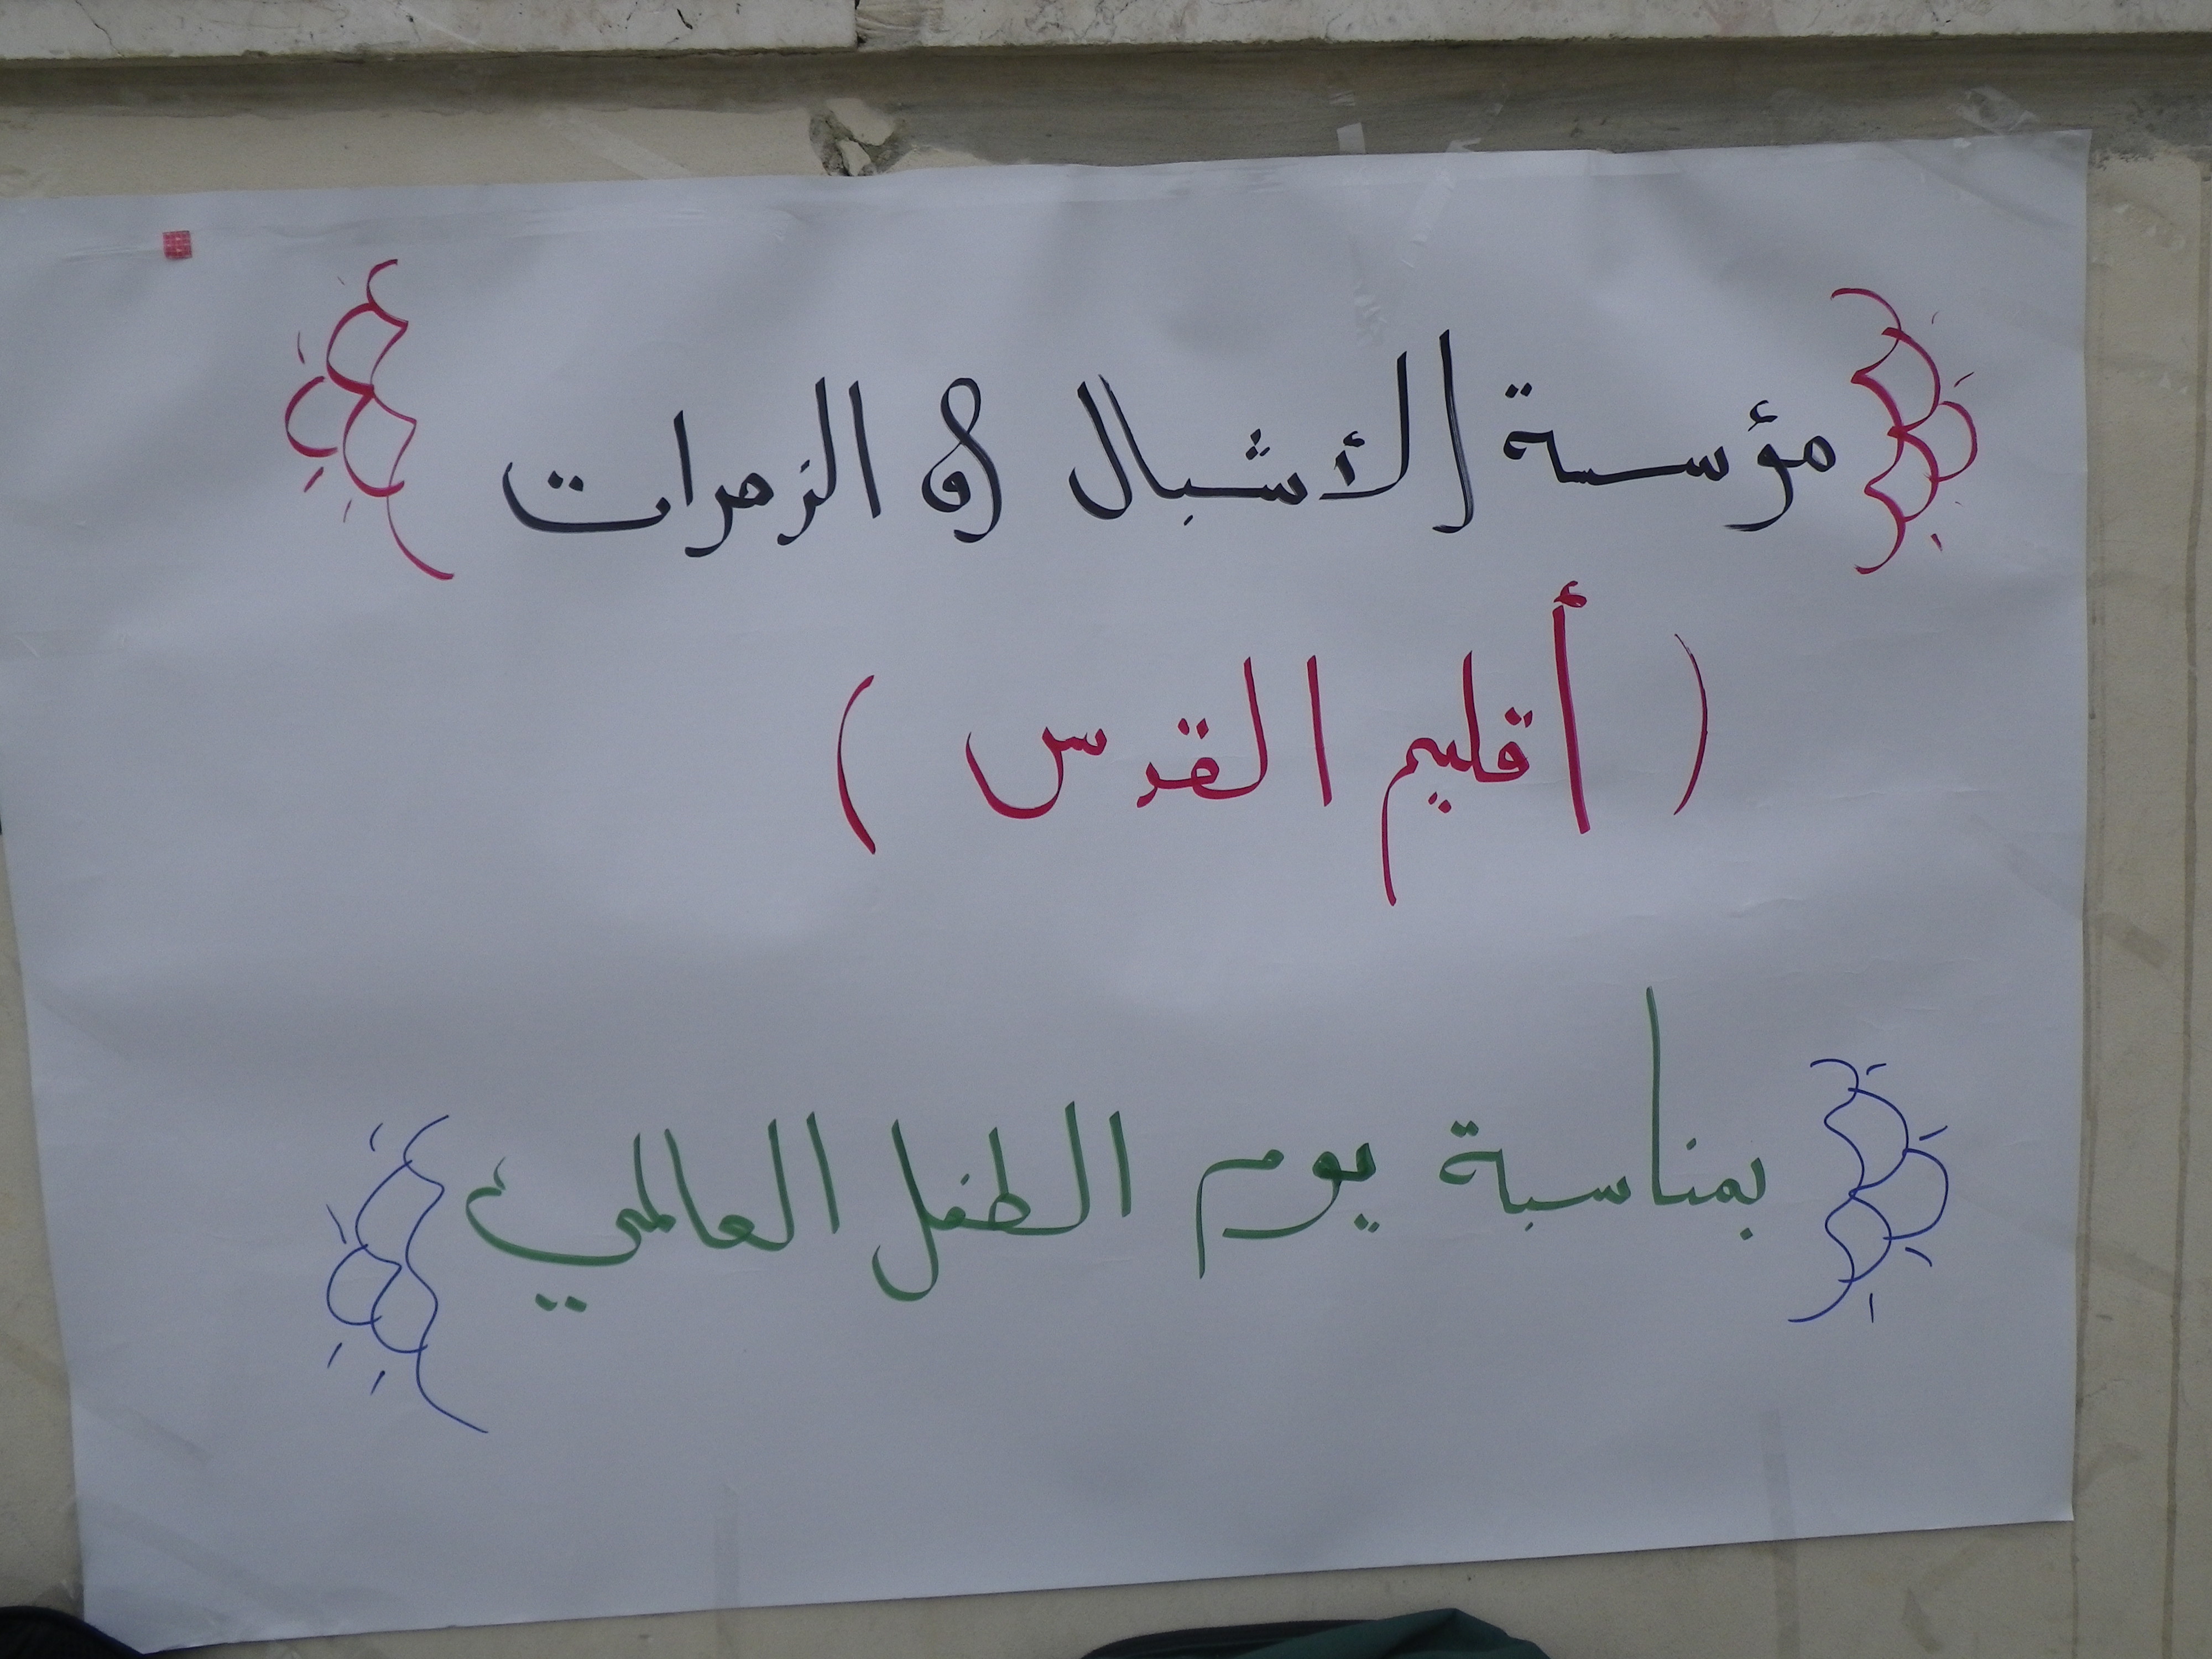 مؤسسة الأشبال و الزهرات
( أقليم القدس )
بمناسبة يوم الطفل العالمي